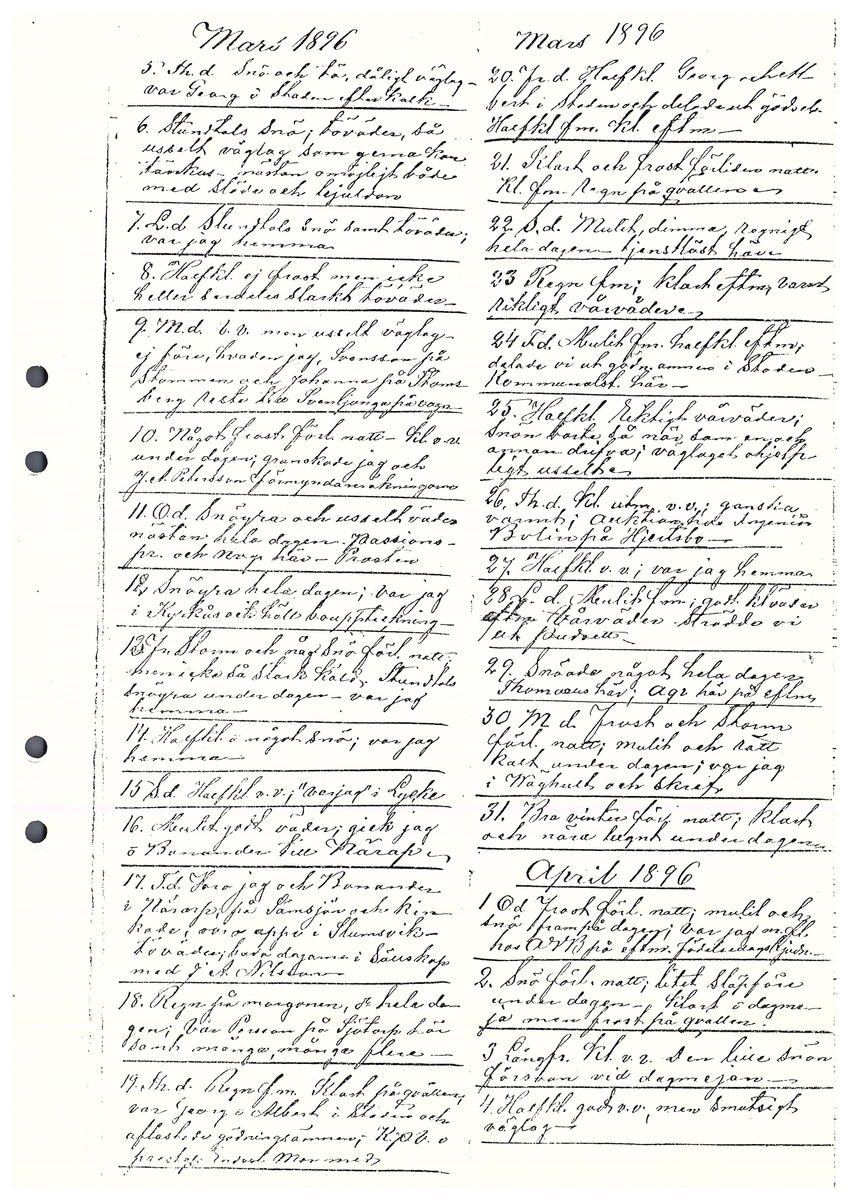 Mars 1896
5. Th.d. Snö och tö, dåligt väglag
var Georg ö Staden efter kalk
6. Stundtals snö; töväder, så
uselt väglag som gerna kan
tänkas - nästan omöjligt både
med släde och hjuldon
7. L.d Stundtals snö samt töväder;
var jag hemma
8. Halfkl. ej frost men icke
heller serdeles starkt töväder
9. M.d. v.v. men uselt väglag
ej före, hvadan jag, Svensson på
Stommen och Johanna på Thoms
berg reste till Svenljunga på vagn
10. Något frost förl. natt - kl v.v.
under dagen; granskade jag och
J.A. Petersson förmyndareräkningarna
11. Od. Snöyra och uselt väder
nästan hela dagen. Passions-
pr. och här - Prosten
12. Snöyra hela dagen; var jag
i Kyrkås och höll bouppteckning
13 Fr. Storm och någ snö förl. natt,
men icke så stark köld; Stundtals
snöyra under dagen - var jag
hemma
14 Halfkl o något snö; var jag
hemma
15 Sd. Halfkl v.v.; var jag i Lycke
16. Mulit godt väder; gick jag
ö Bonander till Närap
17. T.d. Voro jag och Bonander
i Närarp, på Såmsjön och
i Slumsvik-
töväder, båda dagarne i sällskap
med J A. Nilsson
18. Regn på morgonen, hela da-
gen; var Persson på Sjötorp här
samt många, många flere
19. Th.d. Regn f.m. Klart på qvällen,
var Georg o Albert i Staden och
aflastade gödningsämnen; o
med
Mars 1896
20. Fr.d. Halfkl. Georg o hett
bert i Staden och delade ut gödsel
Halfkl fm. kl. eftm
21. Klart och frost förliden natt.
Kl. fm. Regn på qvällen
22 S.d. Mulit, dimma, regnigt
hela dagen - tjenstlöst här
23 Regn fm; klart eftm, varmt
riktigt vårväder
24 T.d. Mulit fm. halfkl eftm;
delade vi ut gödn.ämnen i Staden
Kommunalst. här
25. Halfkl. riktigt vårväder;
snön borta så när som en och
annan drifva; väglaget ohjelp-
ligt uselt
26. Th.d. Kl. utm. v.v.; ganska
varmt; auktion hos Ingeniör
Bolin på Hjertsbo
27. Halfkl v.v; var jag hemma
28 L.d. Mulit fm; godt kl väder
eftm Vårväder strödde vi
ut pudrett
29. Snöade något hela dagen
Thomæus här; Agr här på eftm
30. M d. Frost och storm
förl. natt; mulit och rätt
kalt under dagen; var jag
i Wäghult och skref
31. Bra vinter förl natt; klart
och nära lugnt under dagen
April 1896
1 Od Frost förl. natt; mulit och
snö fram på dagen; var jag m.fl.
hos AVB på eftm. födelsedags
2. Snö förl. natt; litet slädföre
under dagen. Klart o dagme-
ja men frost på qvällen.
3 Långfr. Kl. v.v. Den lilla snön
försvan vid dagmejan
4. Halfkl. godt v.v, men smutsigt
väglag